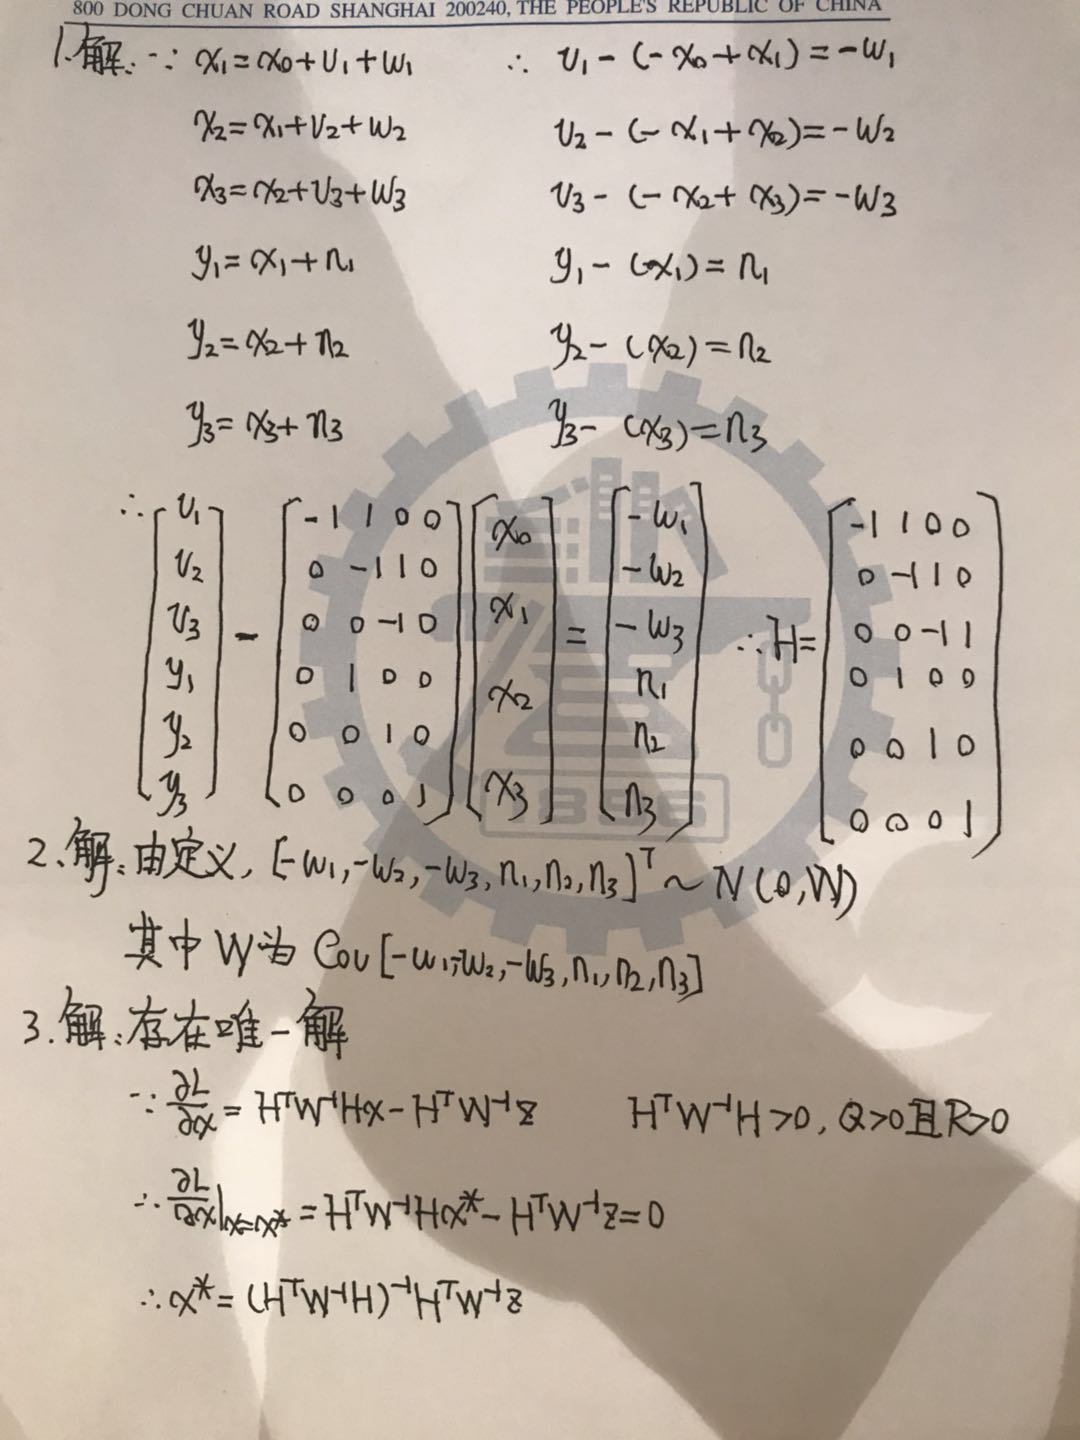 800 DONG CHUAN ROAD SHANGHAI 200240, THE PEOPLE'S REPUBLIC OF CHINA
1.解: ∵ x₁=x₀+v₁+w₁ ∴ v₁-(-x₀+x₁)=-w₁
x₂=x₁+v₂+w₂ v₂-(-x₁+x₂)=-w₂
x₃=x₂+v₃+w₃ v₃-(-x₂+x₃)=-w₃
y₁=x₁+n₁ y₁-(x₁)=n₁
y₂=x₂+n₂ y₂-(x₂)=n₂
y₃=x₃+n₃ y₃-(x₃)=n₃
∴ v₁ -1 1 0 0 x₀ -w₁ -1 1 0 0
v₂ 0 -1 1 0 -w₂ 0 -1 1 0
v₃ - 0 0 -1 0 x₁ = -w₃ ∴H= 0 0 -1 1
y₁ 0 1 0 0 x₂ n₁ 0 1 0 0
y₂ 0 0 1 0 n₂ 0 0 1 0
y₃ 0 0 0 1 x₃ n₃ 0 0 0 1
1896
2.解:由定义, [-w₁,-w₂,-w₃,n₁,n₂,n₃]ᵀ~N(0,W)
其中W为 Cov[-w₁,-w₂,-w₃,n₁,n₂,n₃]
3.解:存在唯一解
∵ ∂L/∂x = HᵀW⁻¹Hx-HᵀW⁻¹z HᵀW⁻¹H>0, Q>0且R>0
∴ ∂L/∂x|x=x* = HᵀW⁻¹Hx*-HᵀW⁻¹z=0
∴x*=(HᵀW⁻¹H)⁻¹HᵀW⁻¹z